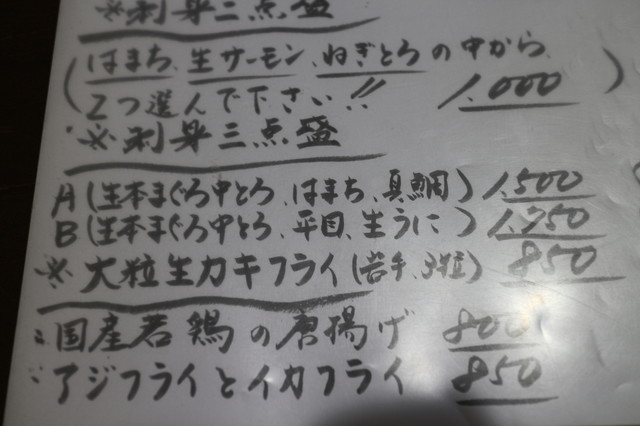 ※刺身二点盛
(はまち、生サーモン、ねぎとろの中から
2つ選んで下さい!! 1,000)
※刺身三点盛
A(生本まぐろ中とろ、はまち、真鯛) 1,500
B(生本まぐろ中とろ、平目、生うに) 1,750
※大粒生カキフライ(岩手、3粒) 850
:国産若鶏の唐揚げ 800
:アジフライとイカフライ 850